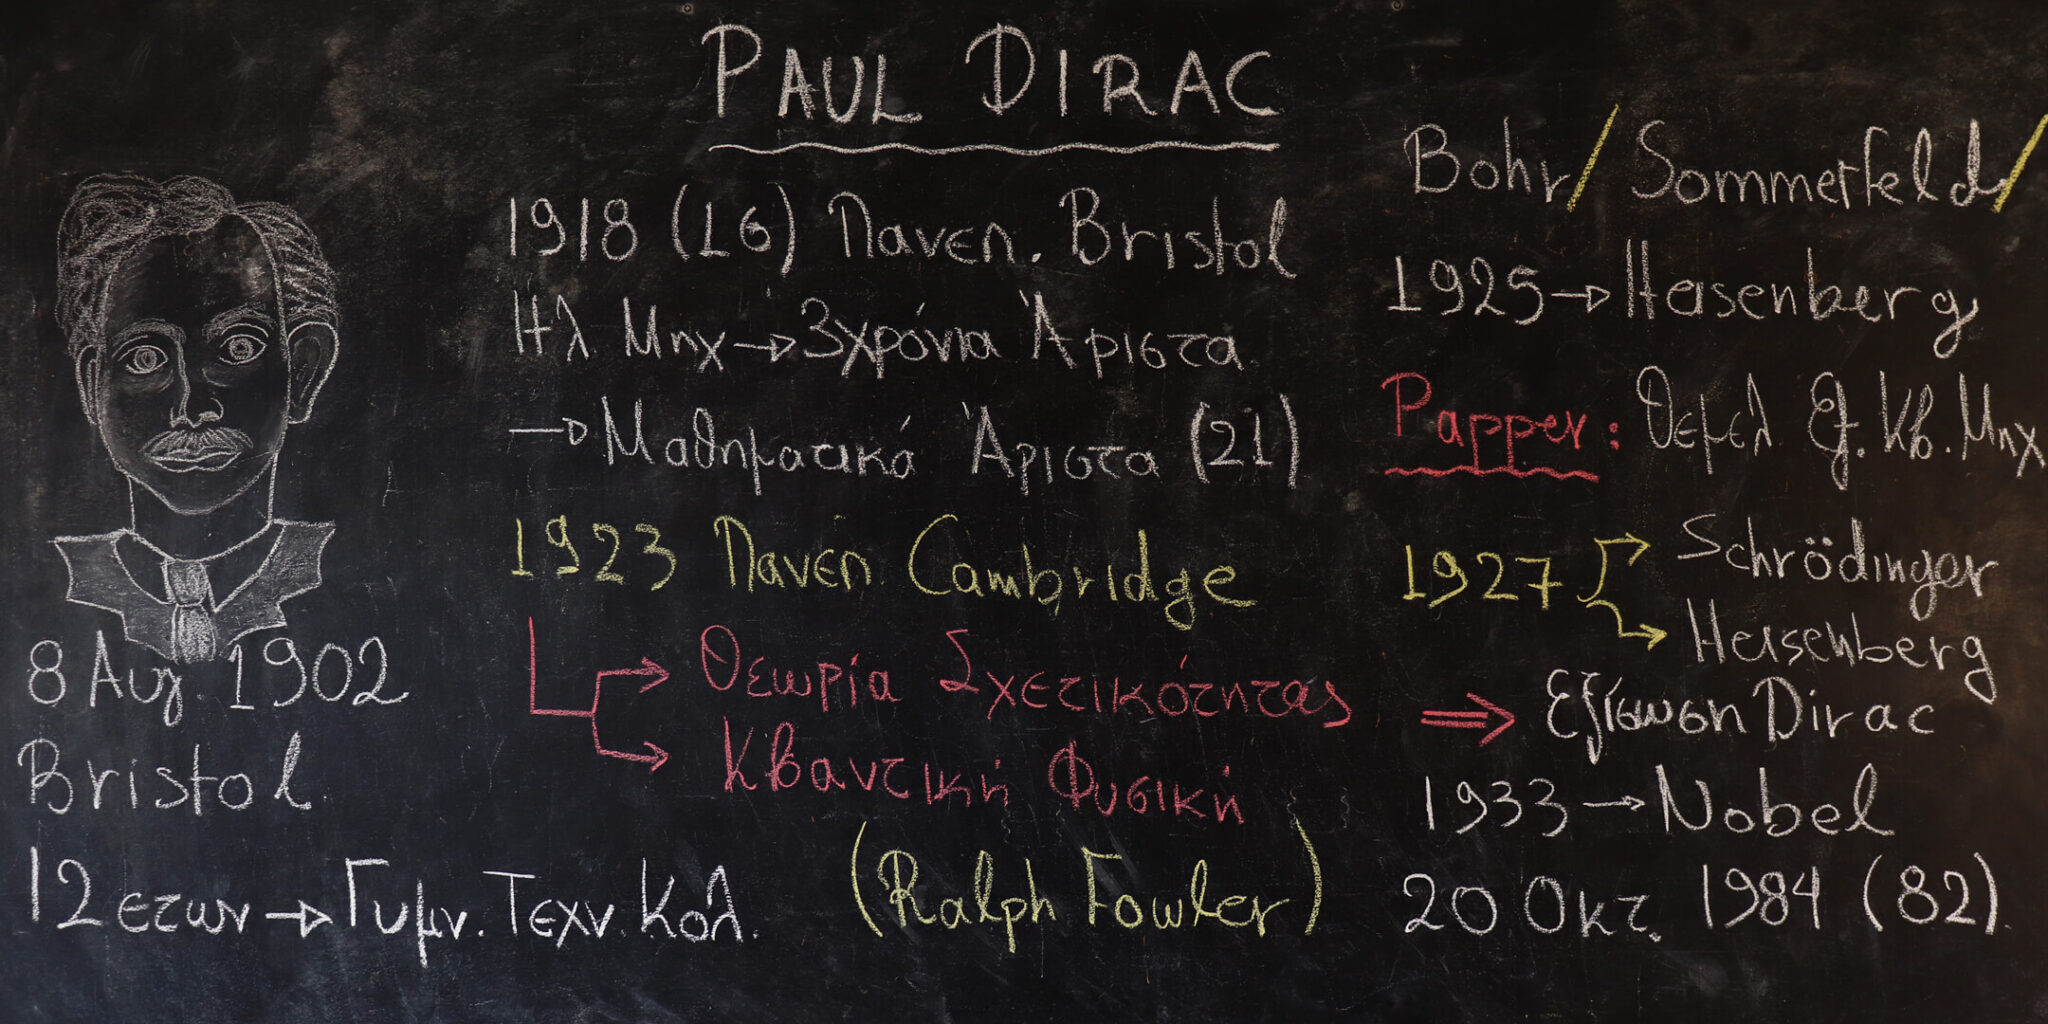 PAUL DIRAC
8 Αυγ. 1902
Bristol
12 ετων → Γυμν. Τεχν. Κολ.
1918 (16) Πανεπ. Bristol
Ηλ Μηχ → 3χρόνια Άριστα
→ Μαθηματικά Άριστα (21)
1923 Πανεπ Cambridge
Θεωρία Σχετικότητας
Κβαντική Φυσική
(Ralph Fowler)
Bohr/ Sommerfeld/
1925 → Heisenberg
Papper: Θεμελ Εξ. Κβ. Μηχ
1927 → Schrödinger
→ Heisenberg
⇒ Εξίσωση Dirac
1933 → Nobel
20 Οκτ. 1984 (82).